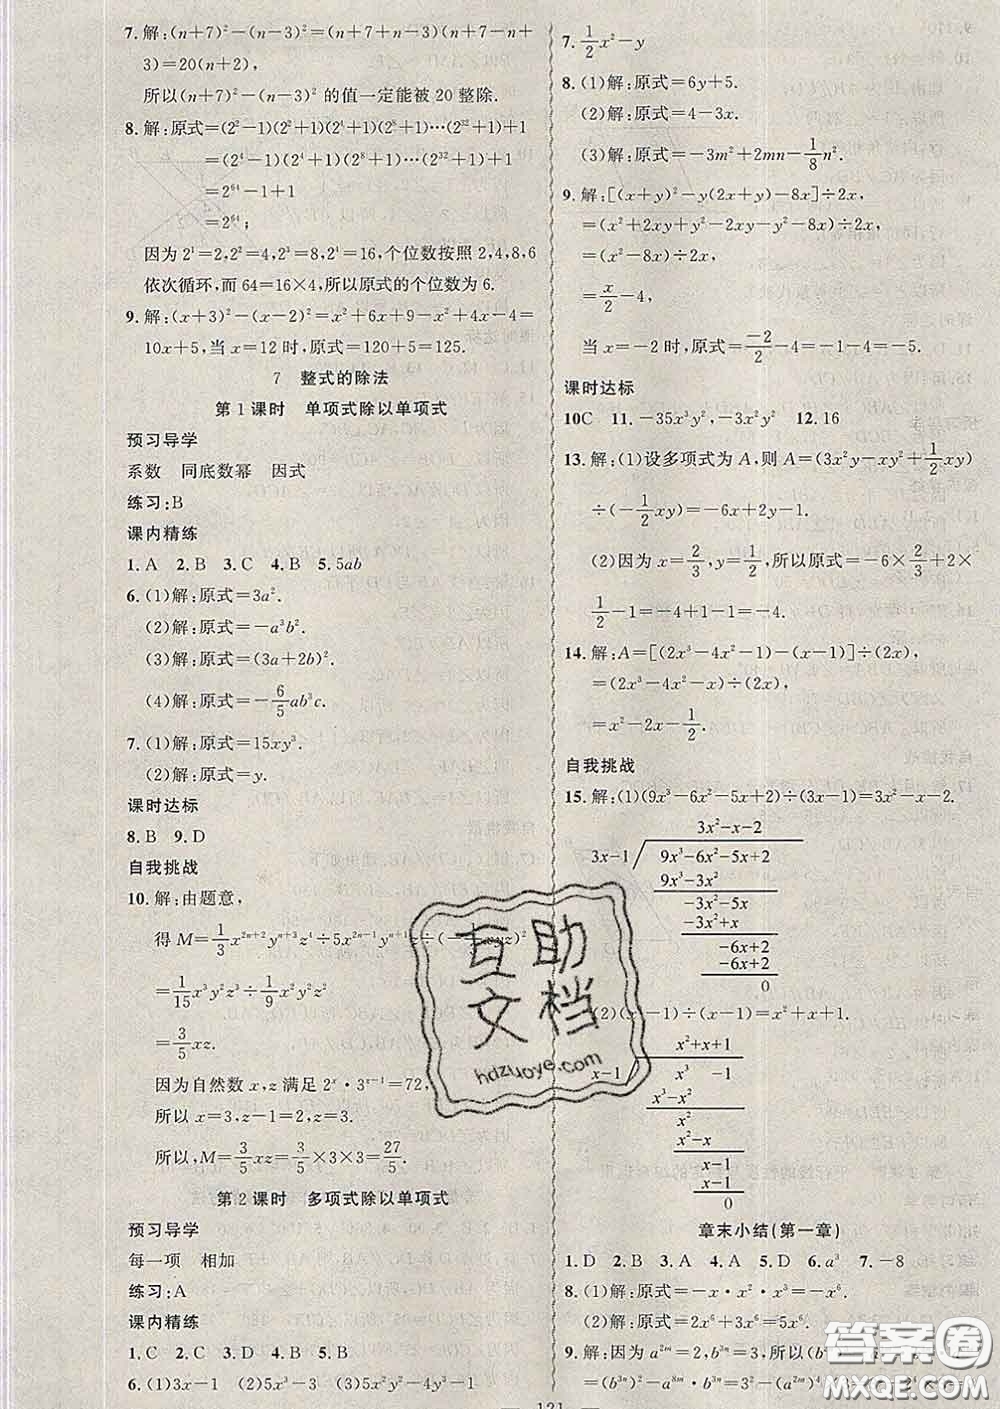 7.解:(n+7)²-(n-3)²=(n+7+n-3)(n+7-n+
3)=20(n+2),
所以(n+7)²-(n-3)²的值一定能被20整除.
8.解:原式=(2²-1)(2²+1)(2⁴+1)…(2³²+1)+1
=(2⁴-1)(2⁴+1)(2⁸+1)…(2³²+1)+1
=2⁶⁴-1+1
=2⁶⁴;
因为2¹=2,2²=4,2³=8,2⁴=16,个位数按照2,4,8,6
依次循环,而64=16×4,所以原式的个位数为6.
9.解:(x+3)²-(x-2)²=x²+6x+9-x²+4x-4=
10x+5,当x=12时,原式=120+5=125.
7 整式的除法
第1课时 单项式除以单项式
预习导学
系数 同底数幂 因式
练习:B
课内精练
1.A 2.B 3.C 4.B 5.5ab
6.(1)解:原式=3a².
(2)解:原式=-a³b².
(3)解:原式=(3a+2b)².
(4)解:原式=-6/5ab³c.
7.(1)解:原式=15xy³.
(2)解:原式=y.
课时达标
8.B 9.D
自我挑战
10.解:由题意,
得M=1/3x²ⁿ⁺²yⁿ⁺³z⁴÷5x²ⁿ⁻¹yⁿ⁺¹z÷(-1/3xyz)²
=1/15x³y²z³÷1/9x²y²z²
=3/5xz.
因为自然数x,z满足2ˣ·3ᶻ⁻¹=72,
所以x=3,z-1=2,z=3.
所以,M=3/5xz=3/5×3×3=27/5.
第2课时 多项式除以单项式
预习导学
每一项 相加
练习:A
课内精练
1.C 2.C 3.D 4.B 5.B
6.(1)3x-1 (2)5x-2y (3)5x²-4y³-1
7.1/2x²-y
8.(1)解:原式=6y+5.
(2)解:原式=4-3x.
(3)解:原式=-3m²+2mn-1/8n².
9.解:[(x+y)²-y(2x+y)-8x]÷2x,
=(x²+2xy+y²-2xy-y²-8x)÷2x,
=(x²-8x)÷2x,
=x/2-4,
当x=-2时,原式=-2/2-4=-1-4=-5.
课时达标
10C 11.-35x³y²,-3x²y² 12.16
13.解:(1)设多项式为A,则A=(3x²y-xy²+1/2xy)
÷(-1/2xy)=-6x+2y-1.
(2)因为x=2/3,y=1/2,所以原式=-6×2/3+2×
1/2-1=-4+1-1=-4.
14.解:A=[(2x³-4x²-1)-(x-1)]÷(2x),
=(2x³-4x²-x)÷(2x),
=x²-2x-1/2.
自我挑战
15.解:(1)(9x³-6x²-5x+2)÷(3x-1)=3x²-x-2.
3x²-x-2
3x-1 9x³-6x²-5x+2
9x³-3x²
-3x²-5x
-3x²+x
-6x+2
-6x+2
0
(2)(x³-1)÷(x-1)=x²+x+1.
x²+x+1
x-1 x³ -1
x³-x²
x²
x²-x
x-1
x-1
0
章末小结(第一章)
1.D 2.B 3.A 4.A 5.D 6.a³ 7.-8
8.(1)解:原式=-x·x²·x³=-x⁶.
(2)解:原式=2x⁶+3x⁶=5x⁶.
9.解:因为a²ᵐ=2,b³ⁿ=3,所以(b³ⁿ)
(b³ⁿ)²-a⁸ᵐ·b³ⁿ=3²-(a²ᵐ)⁴
121
互助
文档
hdzuoye.com
答案圈
MXQE.COM